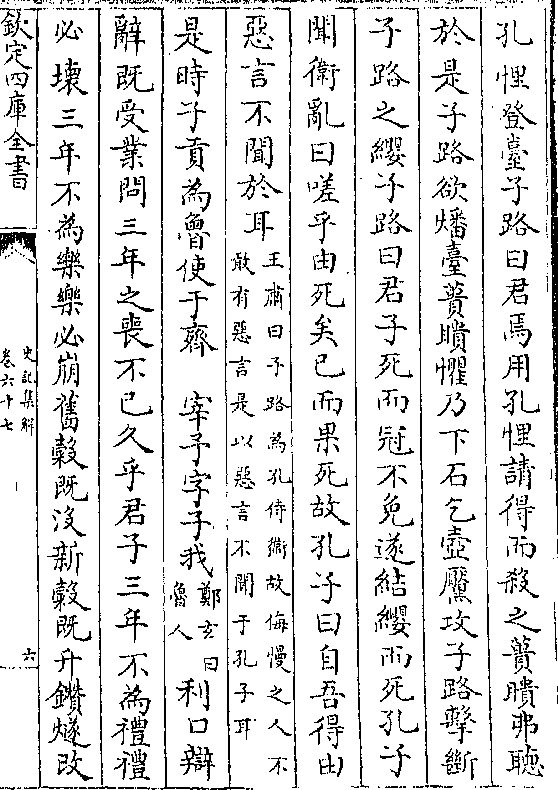 孔悝登臺子路曰君焉用孔悝請得而殺之蕢聵弗聽
於是子路欲燔臺蕢聵懼乃下石乞壺黶攻子路擊斷
子路之纓子路曰君子死而冠不免遂結纓而死孔子
聞衛亂曰嗟乎由死矣已而果死故孔子曰自吾得由
惡言不聞於耳
王肅曰子路為孔侍衛故侮慢之人不
敢有惡言是以惡言不聞于孔子耳
是時子貢為魯使于齊　宰予字子我
鄭玄曰
魯人
利口辯
辭既受業問三年之喪不已久乎君子三年不為禮禮
必壞三年不為樂樂必崩舊穀既沒新穀既升鑽燧改
欽定四庫全書
史記集解
卷六十七
六